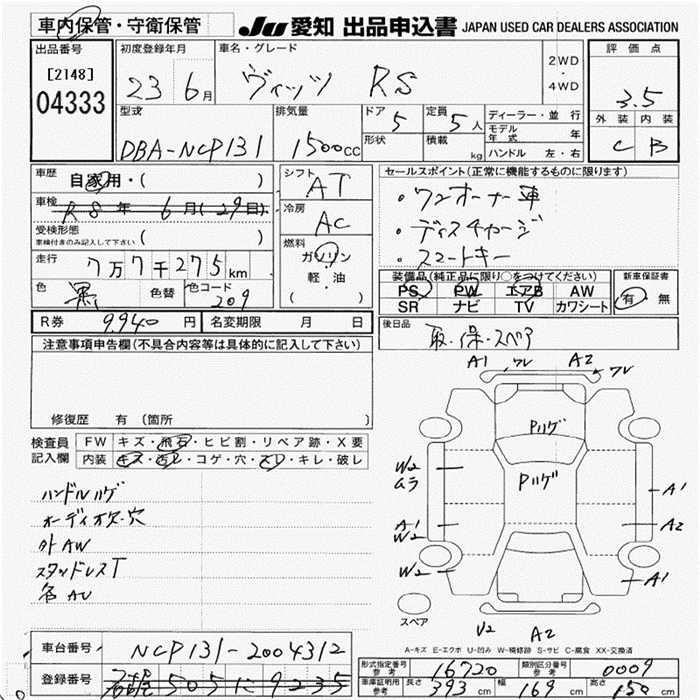 車内保管・守衛保管 JU 愛知 出品申込書 JAPAN USED CAR DEALERS ASSOCIATION
出品番号 初度登録年月 車名・グレード 評価点
[2148] 23 6月 ヴィッツ RS 2WD・4WD 3.5
04333 型式 排気量 ドア 5 定員 5人 ディーラー・並行 外装 内装
形状 積載 kg モデル年式 年
DBA-NCP131 1500cc ハンドル 左・右 C B
車歴 自家用・( ) シフト AT セールスポイント(正常に機能するものに限ります)
車検 R8年 6月(29日) 冷房 AC ・ワンオーナー車
受検形態 車検付きのみ記入して下さい ( ) ・ディスチャージ
走行 7万7千275km 燃料 ガソリン 軽・油 ( ) ・スマートキー
色 黒 色替 色コード 209
装備品(純正品に限り○をつけてください) 新車保証書
PS PW エアB AW 有・無
SR ナビ TV カワシート
R券 9.940円 名変期限 月 日 後日品 取・保・スペア
注意事項申告欄(不具合内容等は具体的に記入して下さい)
修復歴 有 (箇所
検査員記入欄 FW キズ・飛石・ヒビ割・リペア跡・X要
内装 キズ・汚レ・コゲ・穴・スレ・キレ・破レ
ハンドルハゲ
オーディオ欠・穴
外AW
スタッドレスT
A1 ワレ A2 ワレ
Pハゲ
Pハゲ
W2 ムラ A1
A1 W2 A2
W2 A1
スペア
U2 A2
A-キズ E-エクボ U-凹み W-補修跡 S-サビ C-腐食 XX-交換済
車台番号 NCP131-2004312
登録番号 505 に 9235
形式指定番号参考 16720 類別区分番号参考 0009
車庫証明用参考 長さ 393cm 幅 169cm 高さ 150cm